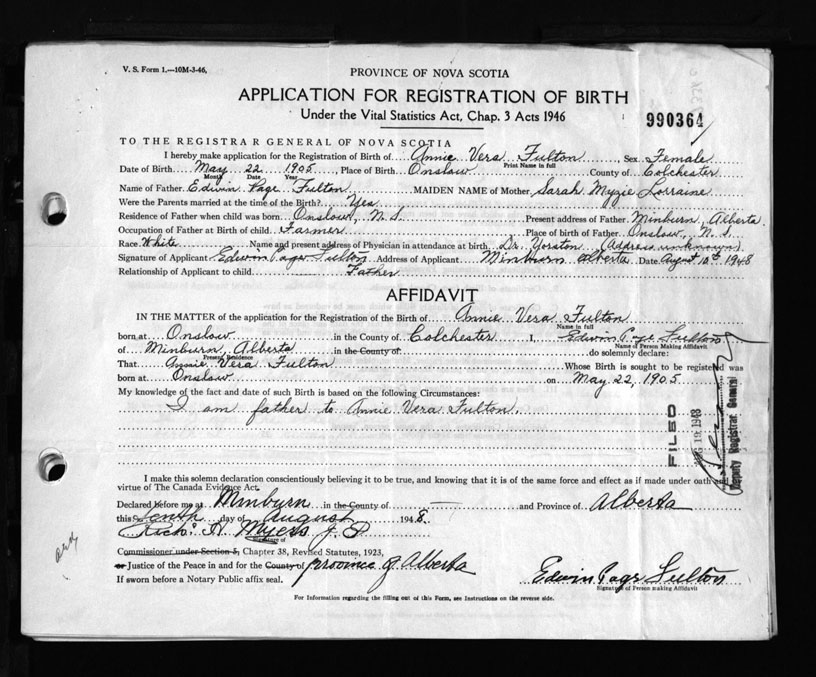 V. S. Form 1.—10M-3-46.
PROVINCE OF NOVA SCOTIA
APPLICATION FOR REGISTRATION OF BIRTH
Under the Vital Statistics Act, Chap. 3 Acts 1946
990364
TO THE REGISTRAR GENERAL OF NOVA SCOTIA
I hereby make application for the Registration of Birth of Annie Vera Fulton Sex Female
Print Name in full
Date of Birth May 22 1905, Place of Birth Onslow County of Colchester
Month Date Year
Name of Father Edwin Page Fulton MAIDEN NAME of Mother Sarah Myzie Lorraine
Were the Parents married at the time of the Birth? Yes
Residence of Father when child was born Onslow, N.S. Present address of Father Minburn, Alberta.
Occupation of Father at Birth of child Farmer Place of birth of Father Onslow, N.S.
Race White Name and present address of Physician in attendance at birth Dr. Yorston (Address unknown)
Signature of Applicant Edwin Page Fulton Address of Applicant Minburn Alberta Date August 10th 1948
Relationship of Applicant to child Father
AFFIDAVIT
IN THE MATTER of the application for the Registration of the Birth of Annie Vera Fulton
Name in full
born at Onslow in the County of Colchester I, Edwin Page Fulton
Name of Person Making Affidavit
of Minburn, Alberta in the County of do solemnly declare:
Present Residence
That Annie Vera Fulton Whose Birth is sought to be registered was
born at Onslow on May 22, 1905
My knowledge of the fact and date of such Birth is based on the following Circumstances:
I am father to Annie Vera Fulton.
FILED
1948
Deputy Registrar General
I make this solemn declaration conscientiously believing it to be true, and knowing that it is of the same force and effect as if made under oath and by
virtue of The Canada Evidence Act.
Declared before me at Minburn in the County of — and Province of Alberta
this tenth day of August 1948.
Rich. H. Myers J.P.
Signature of
Commissioner under Section 5, Chapter 38, Revised Statutes, 1923,
or Justice of the Peace in and for the County of province of Alberta
If sworn before a Notary Public affix seal.
Edwin Page Fulton
Signature of Person making Affidavit
For Information regarding the filling out of this Form, see Instructions on the reverse side.